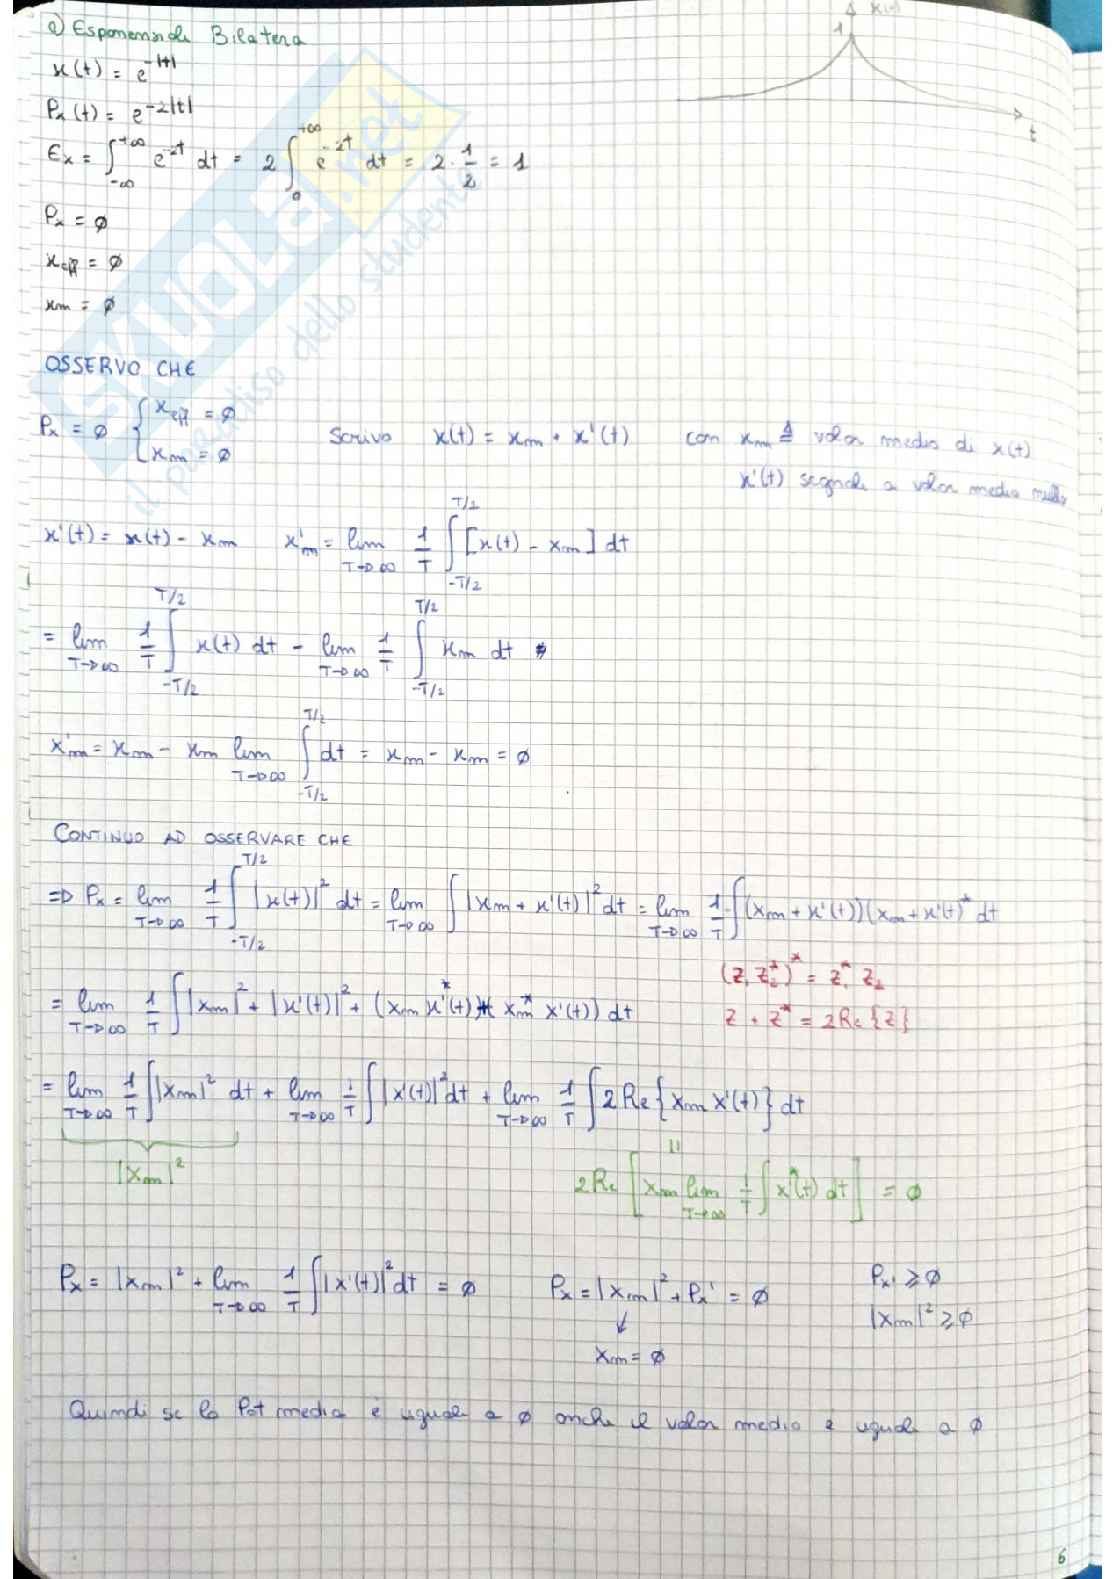 e) Esponenziale Bilatera
x(t)
1
t
x(t) = e^-|t|
Px(t) = e^-2|t|
Ex = ∫_-∞^+∞ e^-2t dt = 2 ∫_0^+∞ e^-2t dt = 2 · 1/2 = 1
Px = ∅
xeff = ∅
xm = ∅
OSSERVO CHE
Px = ∅ { xeff = ∅
xm = ∅
Scrivo x(t) = xm + x'(t) con xm ≜ valor medio di x(t)
x'(t) segnale a valor medio nullo
x'(t) = x(t) - xm x'm = lim T→∞ 1/T ∫_-T/2^T/2 [x(t) - xm] dt
= lim T→∞ 1/T ∫_-T/2^T/2 x(t) dt - lim T→∞ 1/T ∫_-T/2^T/2 xm dt
x'm = xm - xm lim T→∞ ∫_-T/2^T/2 dt = xm - xm = ∅
CONTINUO AD OSSERVARE CHE
=> Px = lim T→∞ 1/T ∫_-T/2^T/2 |x(t)|^2 dt = lim T→∞ ∫ |xm + x'(t)|^2 dt = lim T→∞ 1/T ∫ (xm + x'(t))(xm + x'(t)^* dt
(z1 z2^*)^* = z1^* z2
= lim T→∞ 1/T ∫ |xm|^2 + |x'(t)|^2 + (xm x'^*(t) + xm^* x'(t)) dt
z + z^* = 2Re{z}
= lim T→∞ 1/T ∫ |xm|^2 dt + lim T→∞ 1/T ∫ |x'(t)|^2 dt + lim T→∞ 1/T ∫ 2Re{xm x'(t)} dt
|xm|^2
=
2Re [xm lim T→∞ 1/T ∫ x'(t) dt] = ∅
Px = |xm|^2 + lim T→∞ 1/T ∫ |x'(t)|^2 dt = ∅
Px = |xm|^2 + Px' = ∅
↓
xm = ∅
Px' ≥ ∅
|xm|^2 ≥ ∅
Quindi se la Pot media è uguale a ∅ anche il valor medio è uguale a ∅
6
SKUOLA.net
il paradiso dello studente